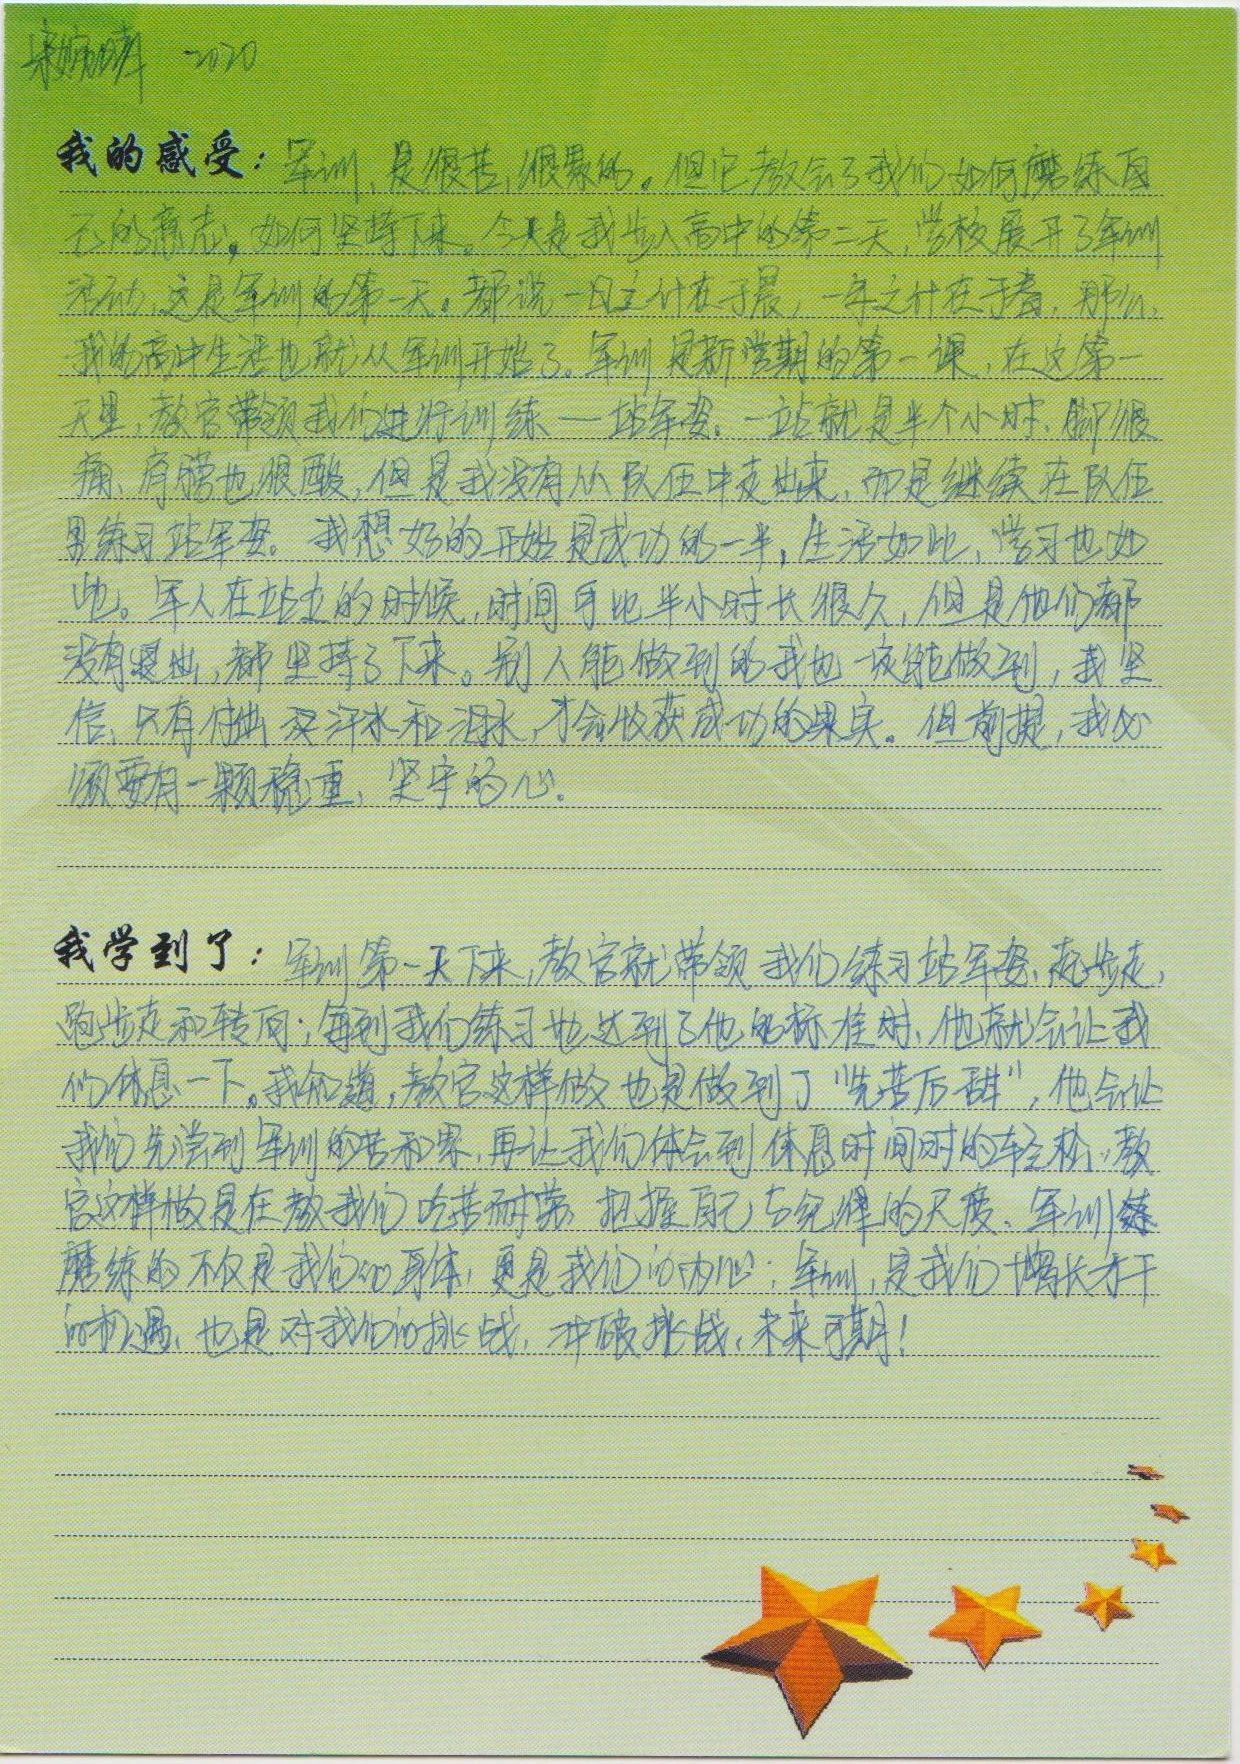 2020
我的感受：军训，是很苦，很累的。但它教会了我们如何磨练自
己的意志，如何坚持下来。今天是我步入高中的第二天，学校展开了军训
活动，这是军训的第一天。都说一日之计在于晨，一年之计在于春，那么，
我的高中生活也就从军训开始了。军训是新学期的第一课，在这第一
天里，教官带领我们进行训练——站军姿。一站就是半个小时，脚很
痛，肩膀也很酸，但是我没有从队伍中走出来，而是继续在队伍
里练习站军姿。我想好的开始是成功的一半，生活如此，学习也如
此。军人在站立的时候，时间比半小时长很久，但是他们都
没有退出，都坚持了下来。别人能做到的我也该能做到，我坚
信，只有付出汗水和泪水，才会收获成功的果实。但前提，我必
须要有一颗稳重，坚守的心。
我学到了：军训第一天下来，教官就带领我们练习站军姿，走步走，
跑步走和转向；每到我们练习也达到了他的标准时，他就会让我
们休息一下。我知道，教官这样做也是做到了“先苦后甜”，他会让
我们先尝到军训的苦和累，再让我们体会到休息时间时的轻松，教
官这样做是在教我们吃苦耐劳，把握自己与纪律的尺度，军训
磨练的不仅是我们的身体，更是我们的内心；军训，是我们增长才干
的机遇，也是对我们的挑战，冲破挑战，未来可期！